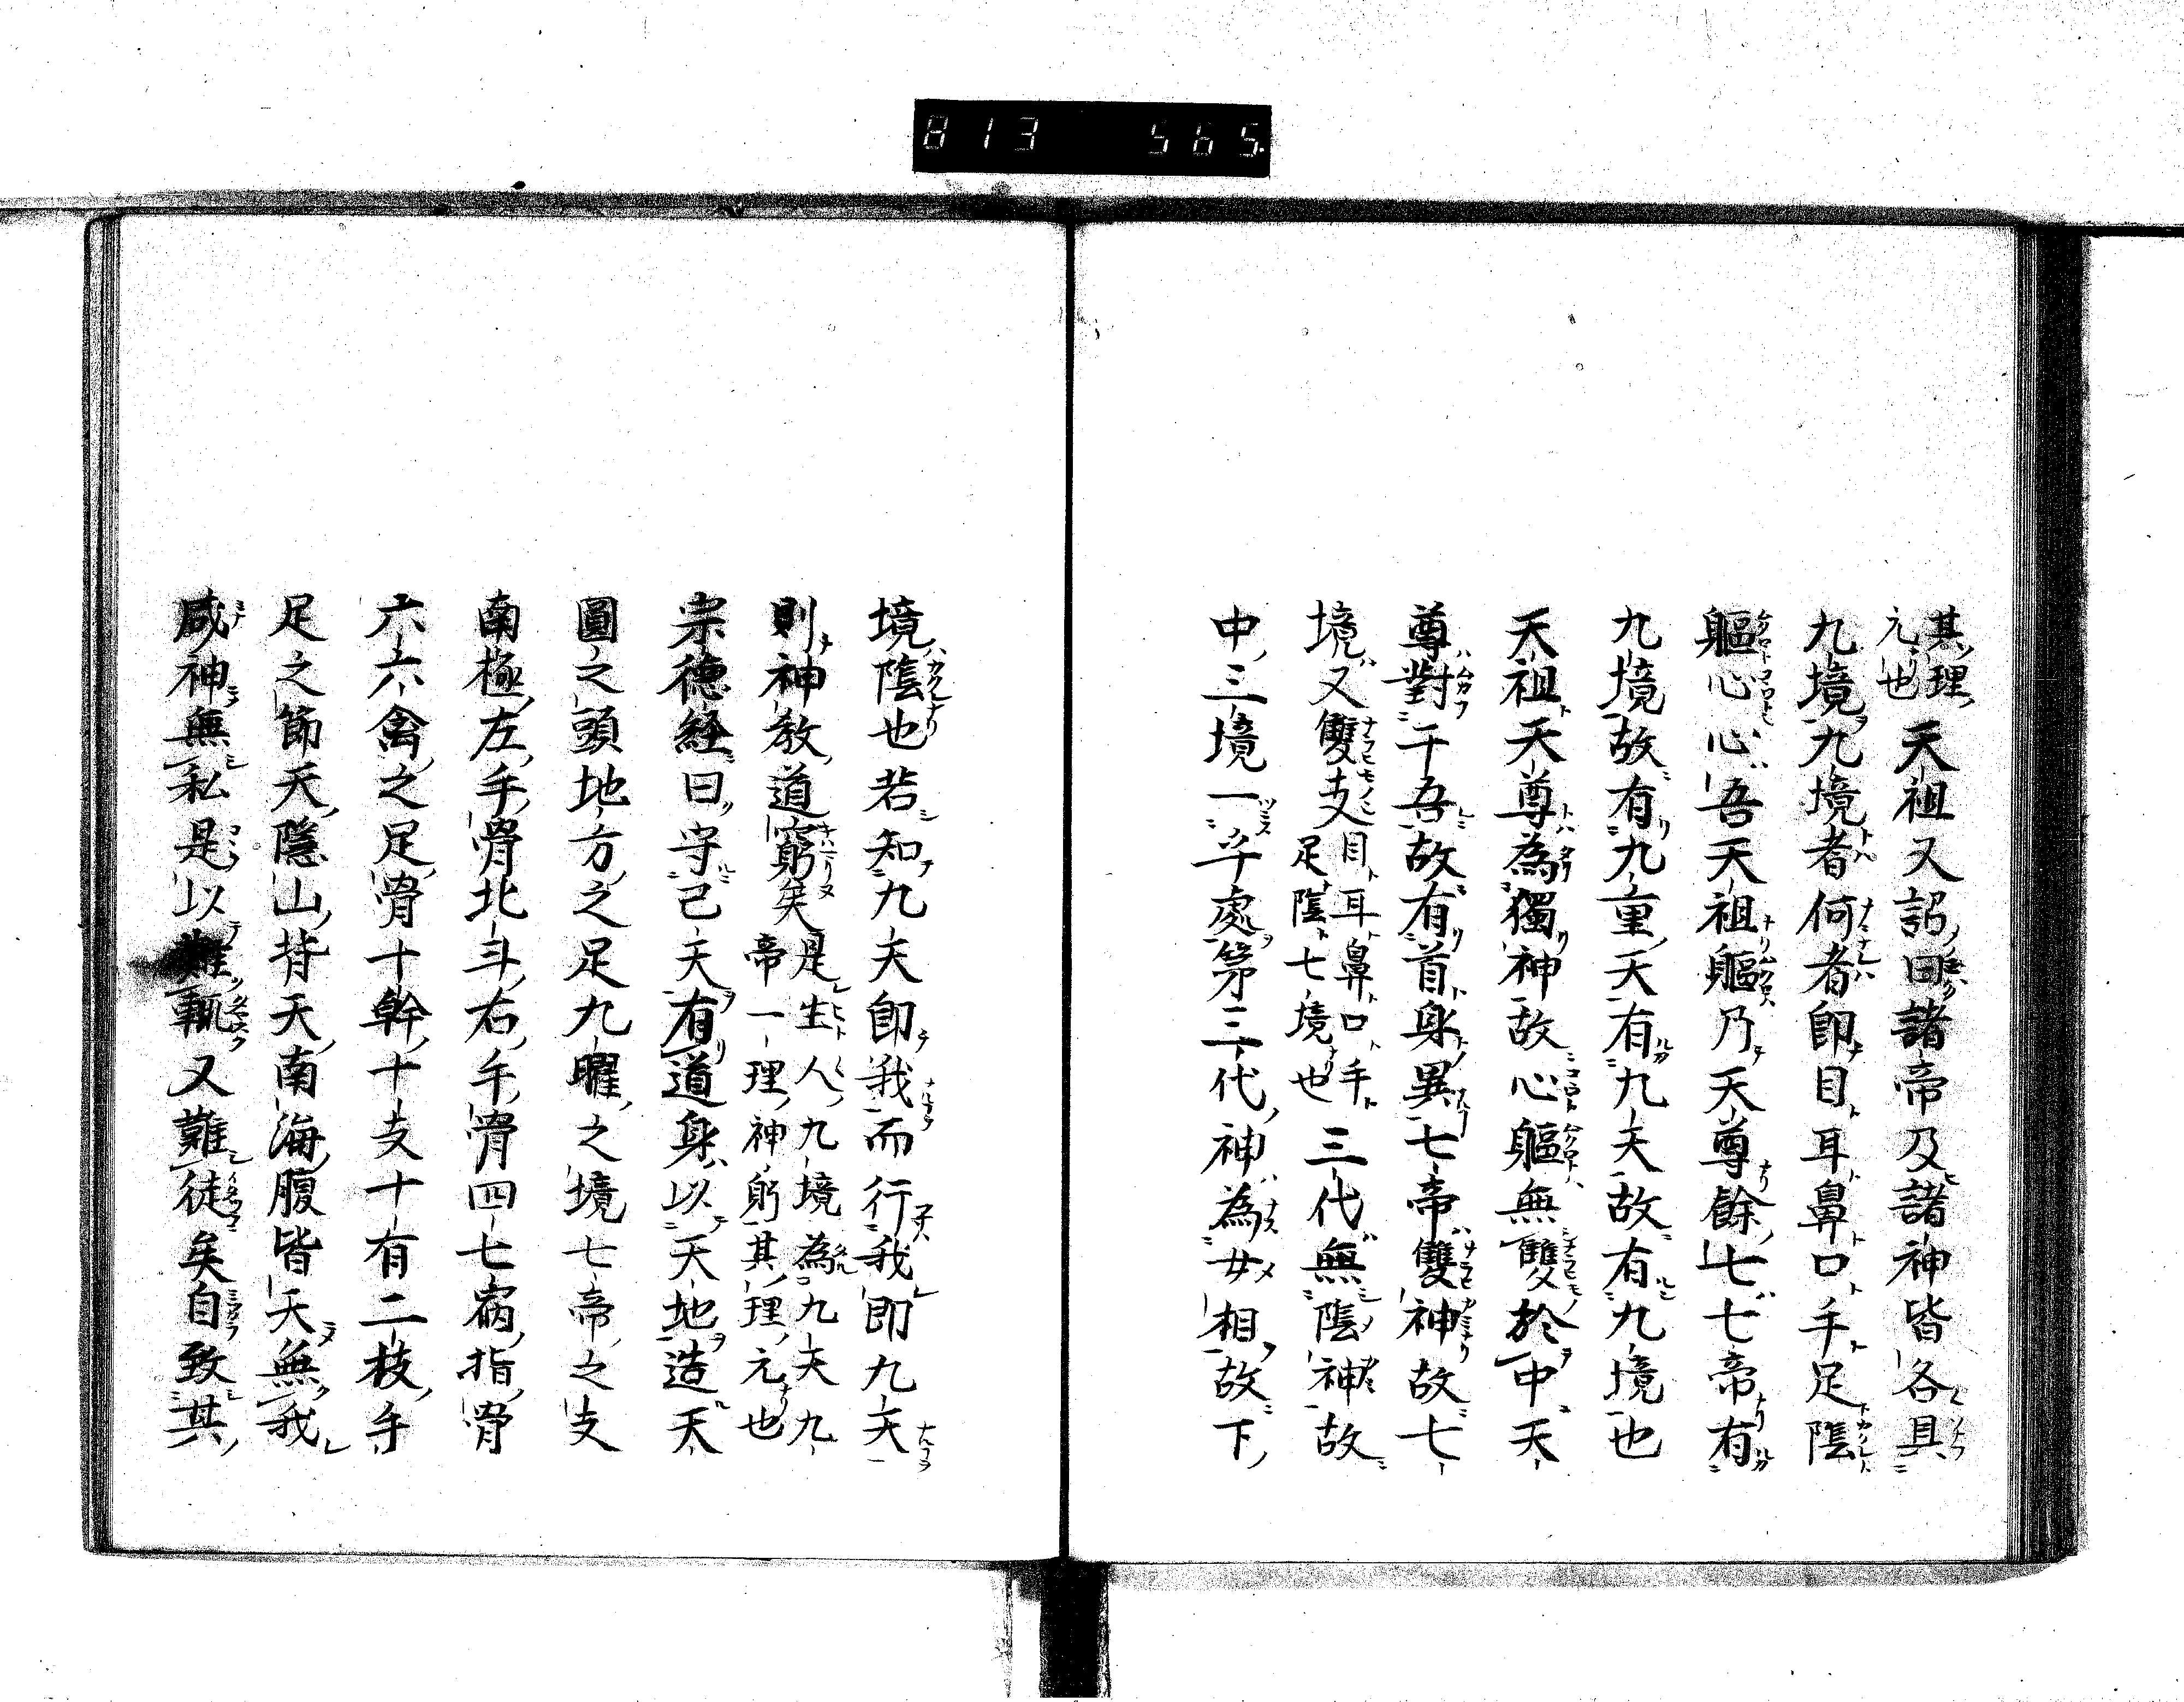 813 565
其理
元也天祖又詔曰諸帝及諸神皆各具
九境九境者何者卽目耳鼻口手足陰
軀心心吾天祖軀乃天尊餘七七帝有
九境故有九重天有九天故有九境也
天祖天尊為獨神故心軀無雙於中天
尊對干吾故有首身異七帝雙神故七
境又雙支目耳鼻口手
足陰七境也三代無陰神故
中三境一乎處第三代神為女相故下
境陰也若知九天卽我而行我卽九天
則神教道窮矣是生人九境為九天九
帝一理神躬其理元也
宗德経曰守己天有道身以天地造天
圓之頭地方之足九曜之境七帝之支
南極左手骨北斗右手骨四七宿指骨
六六禽之足骨十幹十支十有二枝手
足之節天隱山背天南海腹皆天無我
咸神無私是以難執又難徒矣自致其